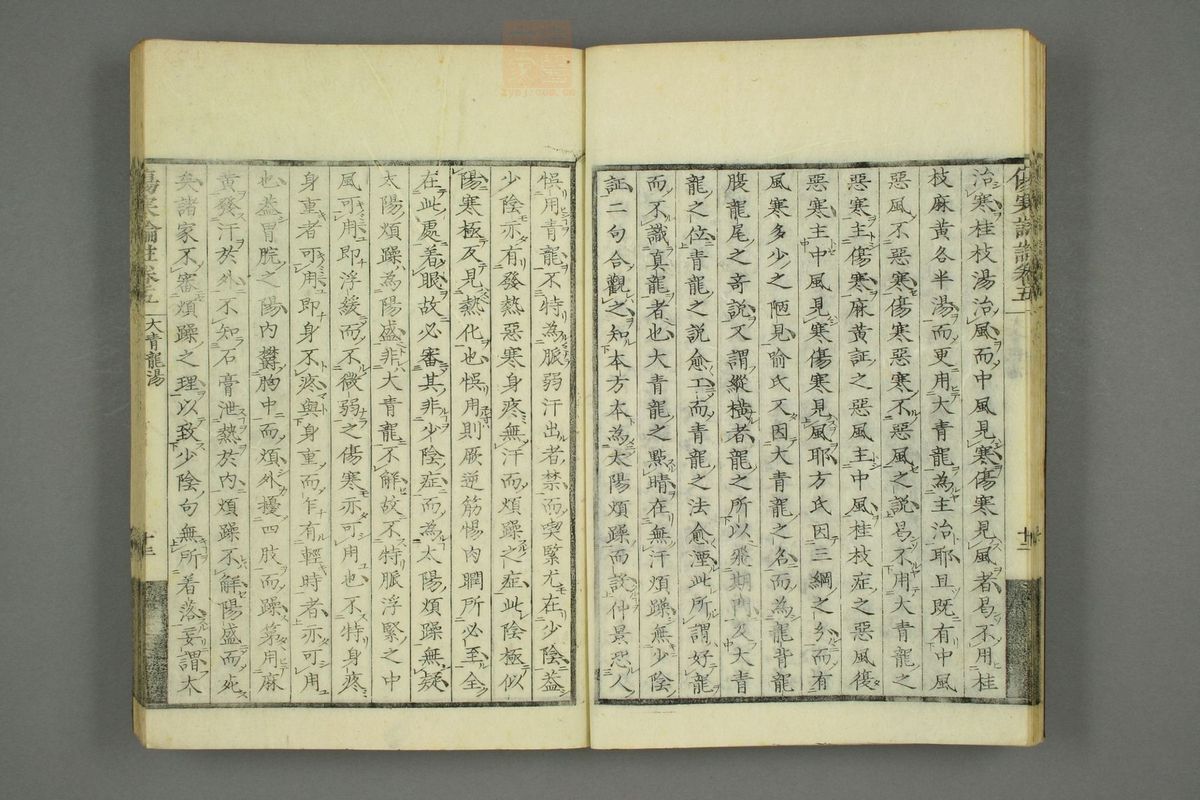 傷寒論註卷五
十二
治寒桂枝湯治風而中風見寒傷寒見風者曷不用桂
枝麻黃各半湯而更用大青龍為主治耶且既有中風
惡風不惡寒傷寒惡寒不惡風之說曷不用大青龍之
惡寒主傷寒麻黃証之惡風主中風桂枝症之惡風復
惡寒主中風見寒傷寒見風耶方氏因三綱之分而有
風寒多少之陋見喻氏又因大青龍之名而為龍背龍
腹龍尾之奇說又謂縱橫者龍之所以飛期門又大青
龍之位青龍之說愈工而青龍之法愈湮此所謂好龍
而不識真龍者也大青龍之點睛在無汗煩躁無少陰
証二句合觀之知本方本為太陽煩躁而設仲景恐人
悞用青龍不特為脈弱汗出者禁而喫緊尤在少陰蓋
少陰亦有發熱惡寒身疼無汗而煩躁之症此陰極似
陽寒極反見熱化也悞用則厥逆筋惕肉瞤所必至全
在此處着眼故必審其非少陰症而為太陽煩躁無疑
太陽煩躁為陽盛非大青龍不解故不特脈浮緊之中
風可用即浮緩而不微弱之傷寒亦可用也不特身疼
身重者可用即身不疼與身重而乍有輕時者亦可用
也蓋胃脘之陽內鬱胸中而煩外擾四肢而躁第用麻
黃發汗於外不知石膏泄熱於內煩躁不解陽盛而死
矣諸家不審煩躁之理以致少陰句無所着落妄謂太
傷寒論註卷五
大青龍湯
十三